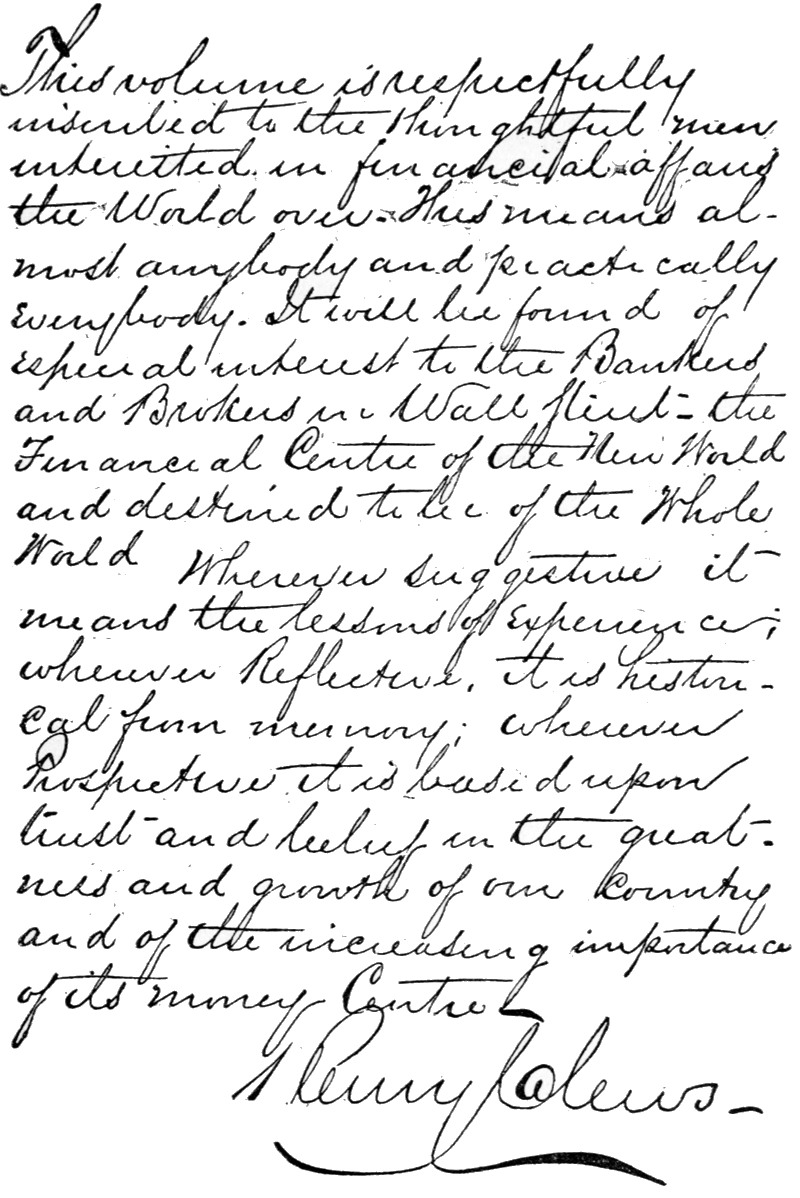 This volume is respectfully
inscribed to the thoughtful men
interested in financial affairs
the World over. This means al-
most anybody and practically
Everybody. It will be found of
Especial interest to the Bankers
and Brokers in Wall Street - the
Financial Centre of the New World
and destined to be of the Whole
World Wherever suggestive it
means the lessons of Experience;
wherever Reflective, it is histori-
cal from memory; wherever
Prospective it is based upon
trust and belief in the great-
ness and growth of our Country
and of the increasing importance
of its money Centre -
Henry Clews -